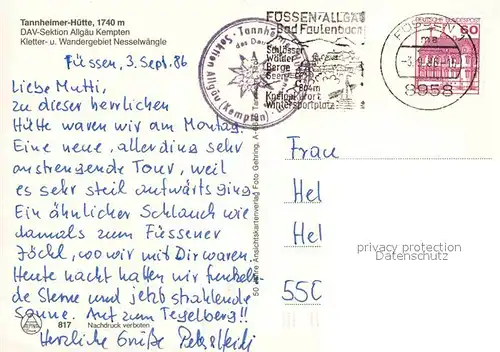 Tannheimer-Hütte, 1740 m
DAV-Sektion Allgäu Kempten
Kletter- u. Wandergebiet Nesselwängle
Füssen, 3. Sept. 86
Liebe Mutti,
zu dieser herrlichen
Hütte waren wir am Montag.
Eine neue, allerdings sehr
anstrengende Tour, weil
es sehr steil aufwärts ging
Ein ähnlicher Schlauch wie
damals zum Füssener
Jöchl, wo wir mit Dir waren.
Heute nacht hatten wir funkeln-
de Sterne und jetzt strahlende
Sonne. Auf zum Tegelberg!!
Herzliche Grüße Peter Heidi
817 Nachdruck verboten
Tannh
des Deu
Sektion Allgäu (Kempten)
50 Jahre Ansichtskartenverlag Foto Gehring, A-6
FÜSSEN/ALLGÄU
Bad Faulenbach
Schlösser
Wälder
Berge
Seen
804m
Kneippkurort
Wintersportplatz
FÜSSEN 1
8958
DEUTSCHE BUNDESPOST
80
Frau
Hel
Hel
550
privacy protection
watermark